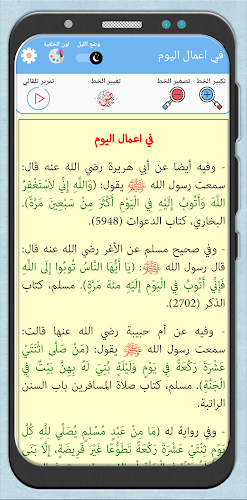 في اعمال اليوم
وضع الليل
لون الخلفية
تكبير الخط
تصغير الخط
تغيير الخط
تمرير تلقائي
في اعمال اليوم
- وفيه أيضا عن أبي هريرة رضي الله عنه قال:
سمعت رسول الله ﷺ يقول: (وَاللَّهِ إِنِّي لَأَسْتَغْفِرُ
اللَّهَ وَأَتُوبُ إِلَيْهِ فِي الْيَوْمِ أَكْثَرَ مِنْ سَبْعِينَ مَرَّةً).
البخاري، كتاب الدعوات (5948).
- وفي صحيح مسلم عن الأغر رضي الله عنه
قال رسول الله ﷺ: (يَا أَيُّهَا النَّاسُ تُوبُوا إِلَى اللَّهِ
فَإِنِّي أَتُوبُ فِي الْيَوْمِ إِلَيْهِ مئة مَرَّةٍ). مسلم، كتاب
الذكر (2702).
- وفيه عن أم حبيبة رضي الله عنها قالت:
سمعت رسول الله ﷺ يقول: (مَنْ صَلَّى اثْنَتَيْ
عَشْرَةَ رَكْعَةً فِي يَوْمٍ وَلَيْلَةٍ بُنِيَ لَهُ بِهِنَّ بَيْتٌ فِي
الْجَنَّةِ). مسلم، كتاب صلاة المسافرين باب السنن
الراتبة.
- وفي رواية له (مَا مِنْ عَبْدٍ مُسْلِمٍ يُصَلِّي لِلَّهِ كُلَّ
يَوْمٍ ثِنْتَيْ عَشْرَةَ رَكْعَةً تَطَوُّعًا غَيْرَ فَرِيضَةٍ، إِلَّا بَنَى